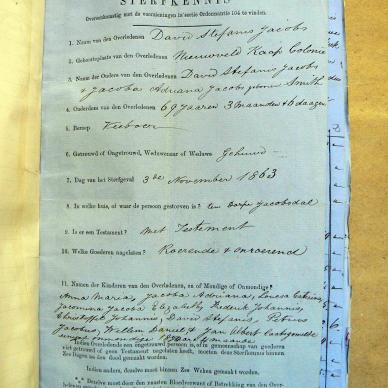 STERFKENNIS
Overeenkomstig met de voorzieningen in sectie Ordonnantie 104 te vinden.
1. Naam van den Overledenen David Stefanus Jacobs
2. Geboorteplaats van den Overledenen Nieuwveld Kaap Colonie
3. Naam der Ouders van den Overledenen David Stefanus Jacobs
& Jacoba Adriana Jacobs geboren Smith
4. Ouderdom van den Overledenen 69 jaaren 3 maanden & 6 daagen
5. Beroep Veeboer
6. Getrouwd of Ongetrouwd, Weduwenaar of Weduwe Gehuwd
7. Dag van het Sterfgeval 3de November 1863
8. In welke huis, of waar de persoon gestorven is? ten dorpe Jacobsdal
9. Is er een Testament? Met Testement
10. Welke Goederen nagelaten? Roerende & onroerend
11. Namen der Kinderen van den Overledenen, en of Mondige of Onmondige?
Anna Maria, Jacoba Adriana, Louisa
Jacomina Jacoba Elizabeth, Frederik Johannes,
Christoffel Johannis, David Stefanus, Petrus
Jacobus, Willem Daniel & Jan Albert
onmondige maande
Indien Overledenen een ongetrouwd persoon is, of in gemeenschap van goederen
viel getrouwd of geen Testament nagelaten heeft, moeten deze Sterfkennis binnen
Zes Dagen na den dood gemaakt worden.
Indien anders, dezelve moet binnen Zes Weken gemaakt worden.
Dezelve moet door den naasten Bloedverwant of Betrekking van den Over-